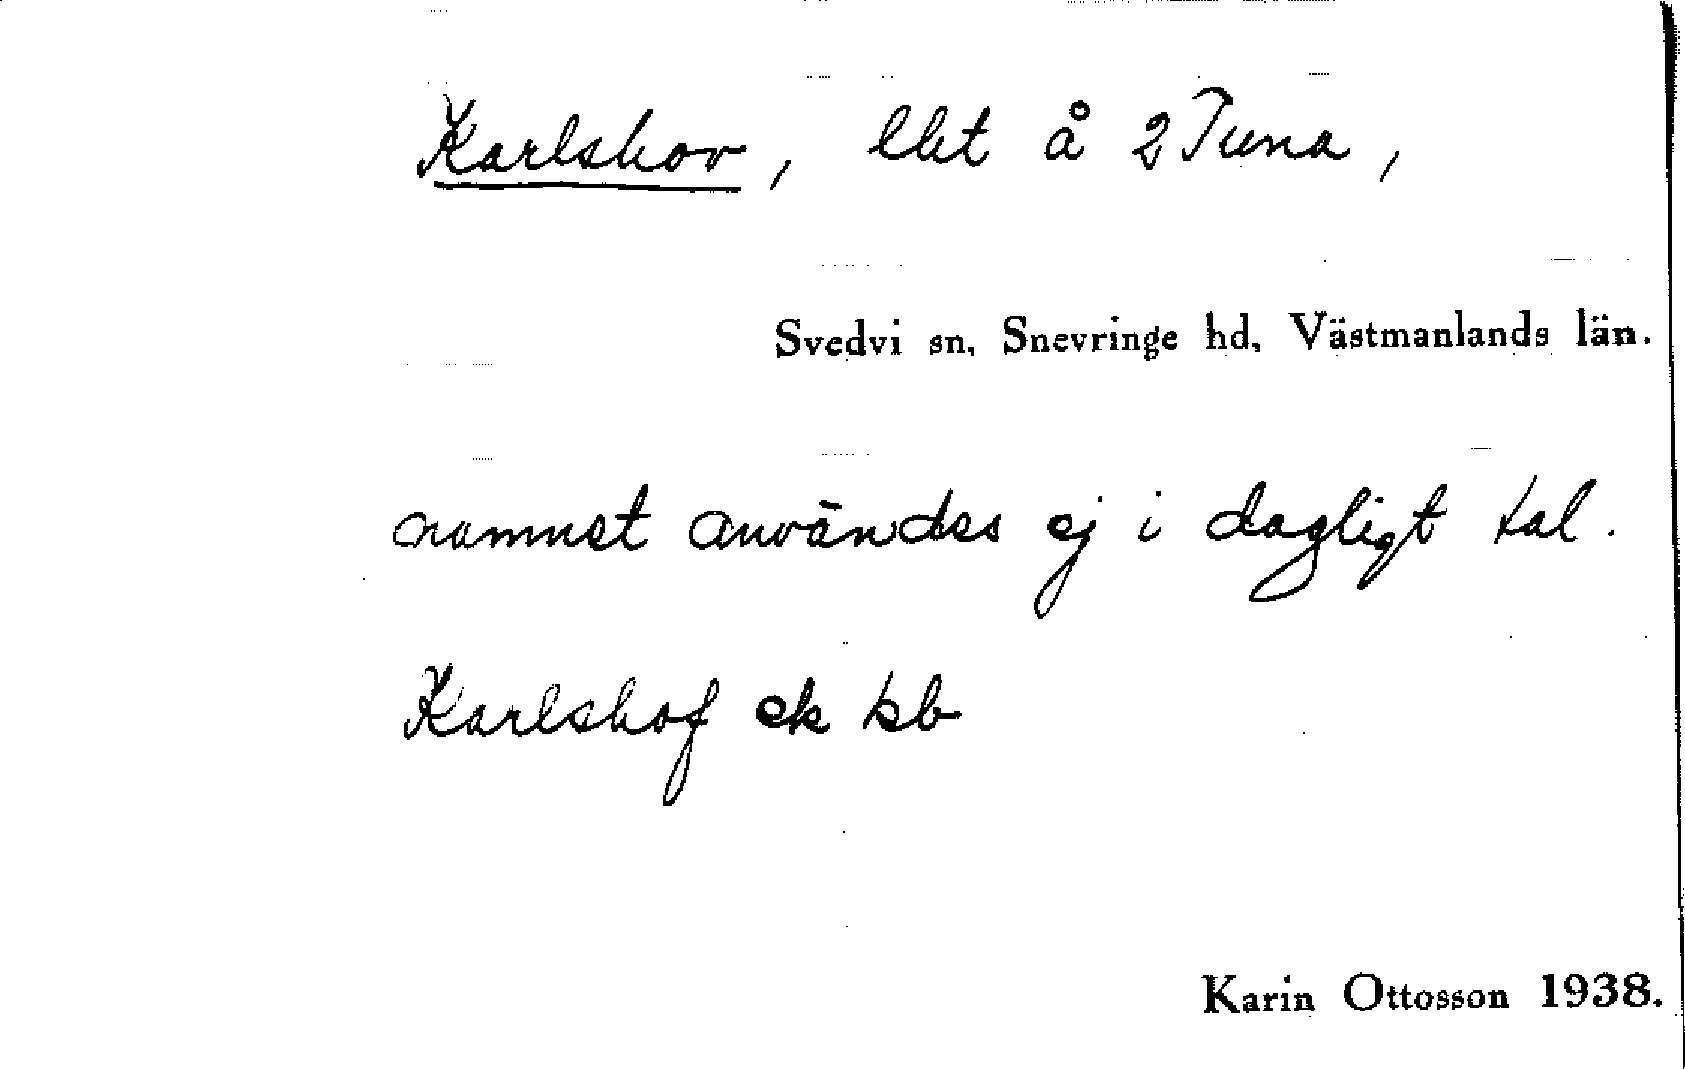 Karlshov, lht å 2 Tuna,
Svedvi sn, Snevringe hd, Västmanlands län.
namnet användes ej i dagligt tal.
Karlshof ek kb
Karin Ottosson 1938.